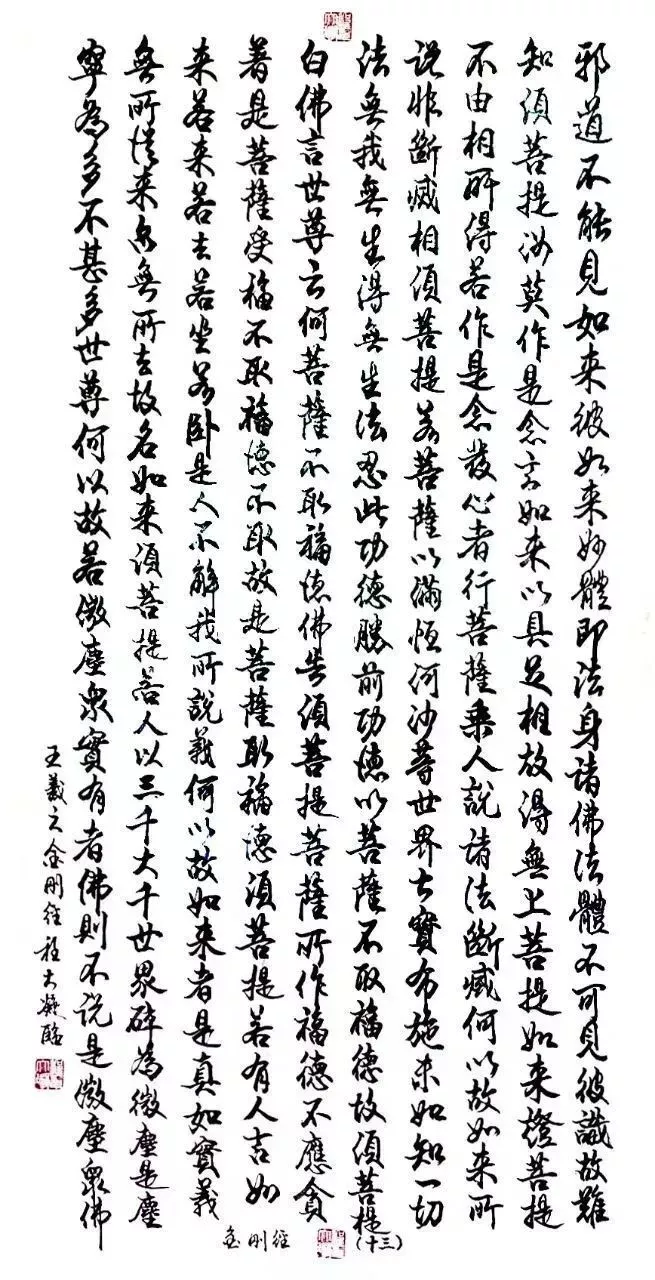 邪道不能見如来彼如来妙體即法身诸佛法體不可見彼識故難
知须菩提汝莫作是念言如来以具足相故得無上菩提如来證菩提
不由相所得若作是念發心者行菩薩乘人說诸法斷滅何以故如来所
说非斷滅相须菩提若菩薩以滿恒河沙等世界七寶布施若知一切
法無我無生得無生法忍此功德勝前功德以菩薩不取福德故须菩提
白佛言世尊云何菩薩不取福德佛告须菩提菩薩所作福德不應貪
著是菩薩受福不取福德不取故是菩薩取福德须菩提若有人言如
来若来若去若坐若卧是人不解我所說義何以故如来者是真如實義
無所從来亦無所去故名如来须菩提若人以三千大千世界碎為微塵是塵
寧為多不甚多世尊何以故若微塵衆實有者佛則不说是微塵衆佛
王羲之金刚经程大凝臨
金刚经
(十三)